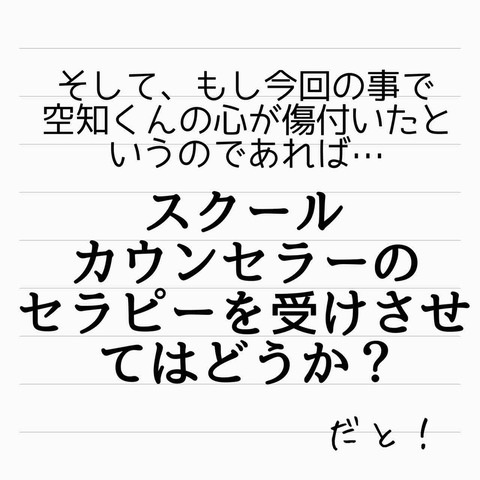 そして、もし今回の事で
空知くんの心が傷付いたと
いうのであれば…
スクール
カウンセラーの
セラピーを受けさせ
てはどうか？
だと！